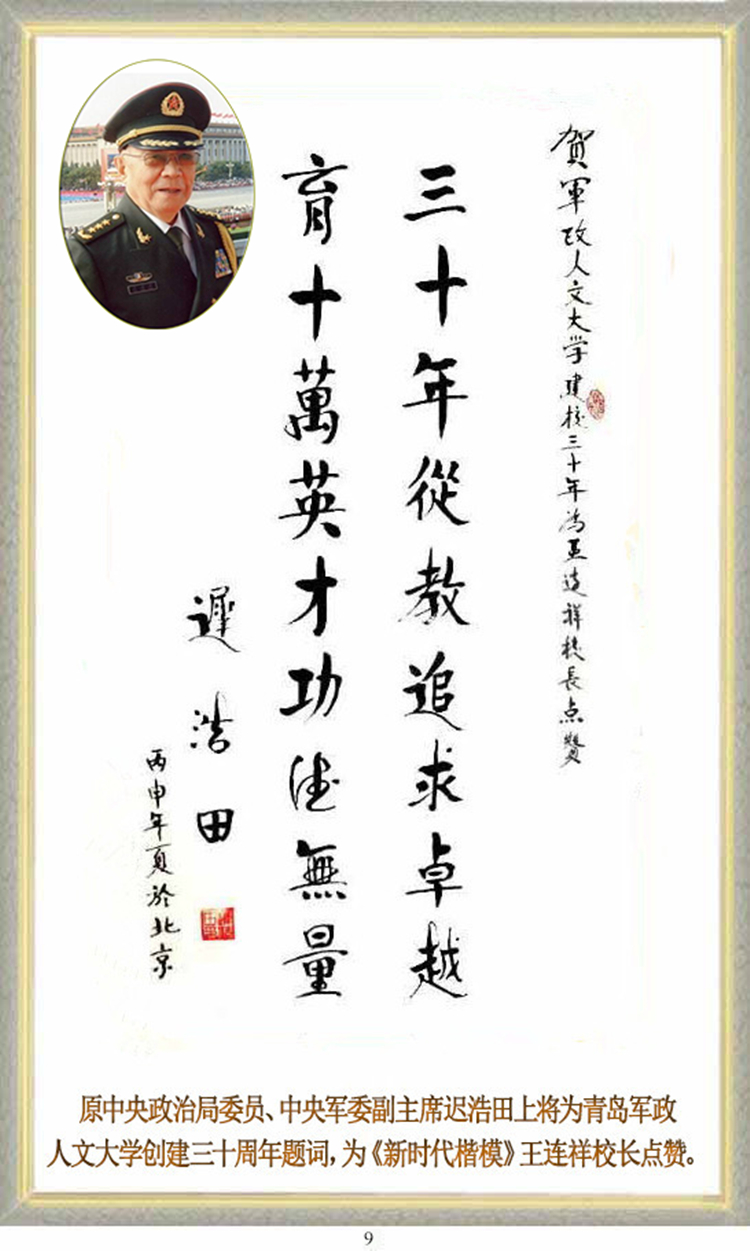 賀軍政人文大学建校三十年為王連祥校長点贊
三十年從教追求卓越
育十萬英才功德無量
遲浩田
丙申年夏於北京
原中央政治局委员、中央军委副主席迟浩田上将为青岛军政
人文大学创建三十周年题词，为《新时代楷模》王连祥校长点赞。
9